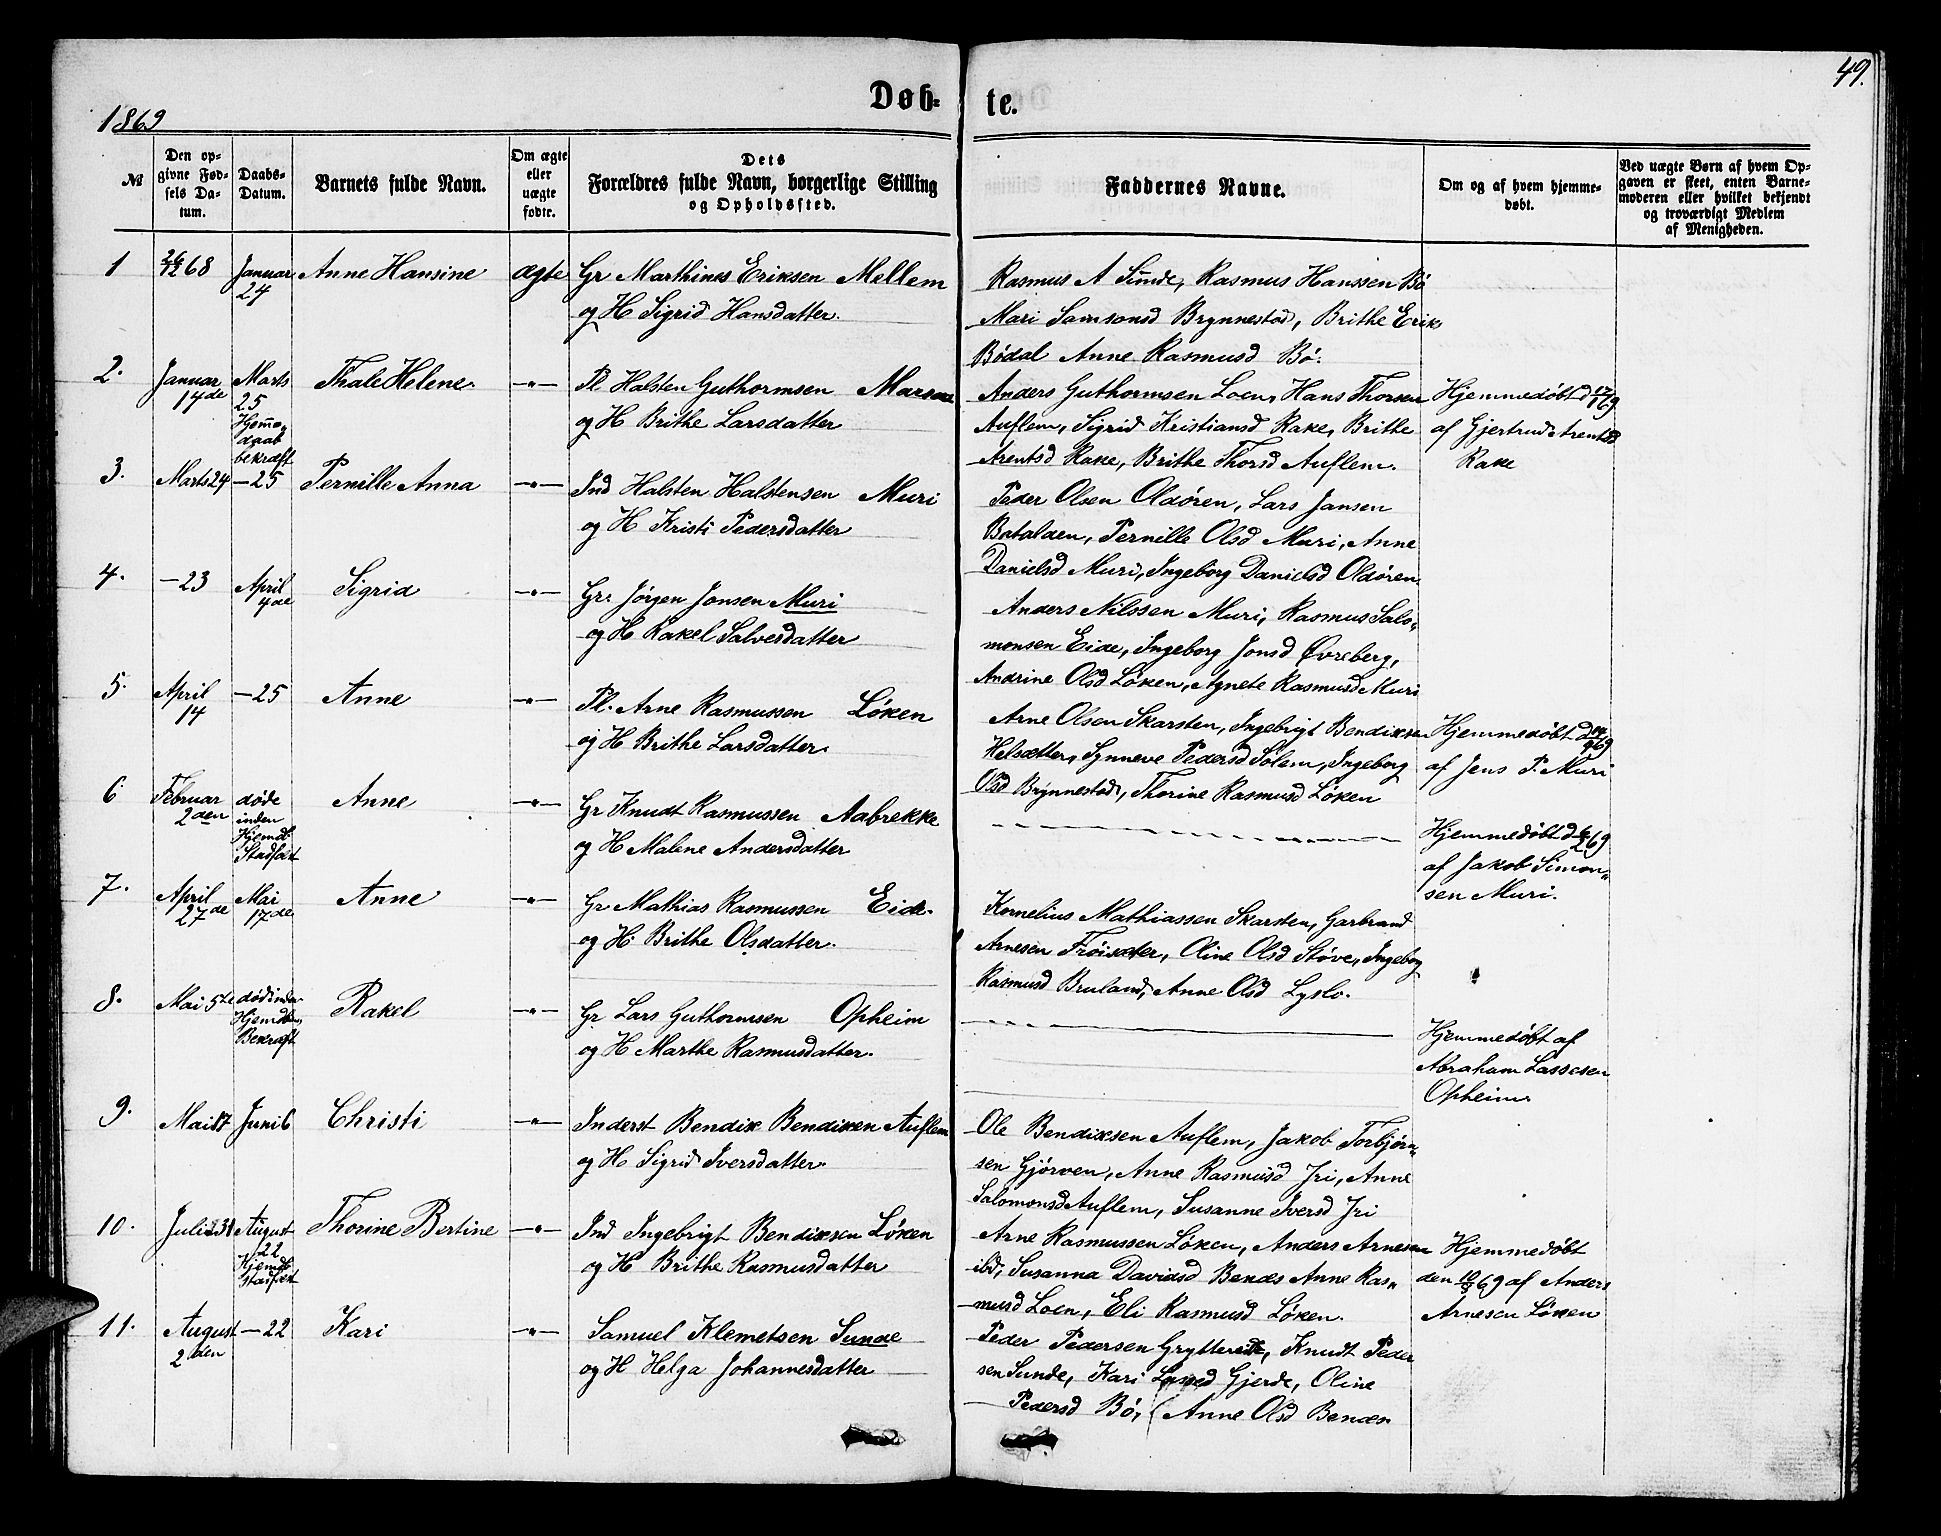 49.
1869
Døb-te.
№
Den op-
givne Fød-
sels Da-
tum.
Daabs-
Datum.
Barnets fulde Navn.
Om ægte
eller
uægte
fødte.
Dets
Forældres fulde Navn, borgerlige Stilling
og Opholdssted.
Faddernes Navne.
Om og af hvem hjemme-
døbt.
Ved uægte Børn af hvem Op-
gaven er skeet, enten Barne-
moderen eller hvilket bekjendt
og troværdigt Medlem
af Menigheden.
1 26/12 68 Januar 24 Anne Hansine ægte
Gr Marthines Eriksen Mellem
og H Sigrid Hansdatter.
Rasmus A Sunde, Rasmus Hanssen Bø
Mari Samsonsd Brynnestad, Brithe Eriks
Bødal Anne Rasmusd Bø.
2. Januar 14de Marts 25 Hjemme daab bekræft Thale Helene —"—
Pl. Halsten Guthormsen
og H Brithe Larsdatter
Anders Guthormsen Loen, Hans Thorsen
Auflem, Sigrid Kristiansd Rake, Brithe
Arentsd Rake, Brithe Thorsd Auflem.
Hjemmedøbt d 17/1 69
af Gjertrud Arentsd
Rake
3. Marts 24 —25 Pernille Anna —"—
Ind Halsten Halstensen Muri
og H Kristi Pedersdatter
Peder Olsen Oldøren, Lars Jansen
Batalden, Pernille Olsd Muri, Anne
Danielsd Muri, Ingeborg Danielsd Oldøren
4. —23 April 4de Sigrid —"—
Gr. Jørgen Jonsen Muri
og H Rakel Salvesdatter
Anders Nilssen Muri, Rasmus Salo-
monsen Eide, Ingeborg Jonsd Øvreberg,
Andrine Olsd Løken, Agnete Rasmusd Muri
5. April 14 —25 Anne —"—
Pl. Arne Rasmussen Løken
og H Brithe Larsdatter
Arne Olsen Skarsten, Ingebrigt Bendiksen
Helsætter, Synneve Pedersd Solem, Ingeborg
Olsd Brynnestad, Thorine Rasmusd Løken
Hjemmedøbt d
af Jens P. Muri
6 Februar 2den døde inden Hjemd. Stadfæst Anne —"—
Gr Knudt Rasmussen Aabrekke
og H Malene Andersdatter
Hjemmedøbt d 69
af Jakob Simon-
sen Muri.
7. April 27de Mai 17de Anne —"—
Gr Mathias Rasmussen Eide
og H. Brithe Olsdatter.
Kornelius Mathiassen Skarsten, Garbrand
Arnesen Frøisæter, Oline Olsd Støve, Ingeborg
Rasmusd Bruland, Anne Olsd Lyslo.
8. Mai 5te død inden Hjemdb. Bekræft Rakel —"—
Gr Lars Guthormsen Opheim
og H Marthe Rasmusdatter.
Hjemmedøbt af
Abraham Lassesen
Opheim
9. Mai 17 Juni 6 Christi —"—
Inderst Bendik Bendiksen Auflem
og H Sigrid Iversdatter
Ole Bendiksen Auflem, Jakob Torbjørn-
sen Gjørven, Anne Rasmusd Jri, Anne
Salomonsd Auflem, Susanne Iversd Jri
10. Juli 31 August 22 Hjemdb stadfæst Thorine Bertine —"—
Ind Ingebrigt Bendiksen Løken
og H Brithe Rasmusdatter
Arne Rasmussen Løken, Anders Arnesen
ibd, Susanna Davidsd Benæs Anne Ras-
musd Loen, Eli Rasmusd Løken.
Hjemmedøbt
den 10/8 69 af Anders
Arnesen Løken
11. August 2den —22 Kari —"—
Samuel Klemetsen Sunde
og H Helga Johannesdatter
Peder Pedersen Gryttereide, Knudt Peder
sen Sunde, Kari Gjerde, Oline
Pedersd Bø, Anne Olsd Benæs